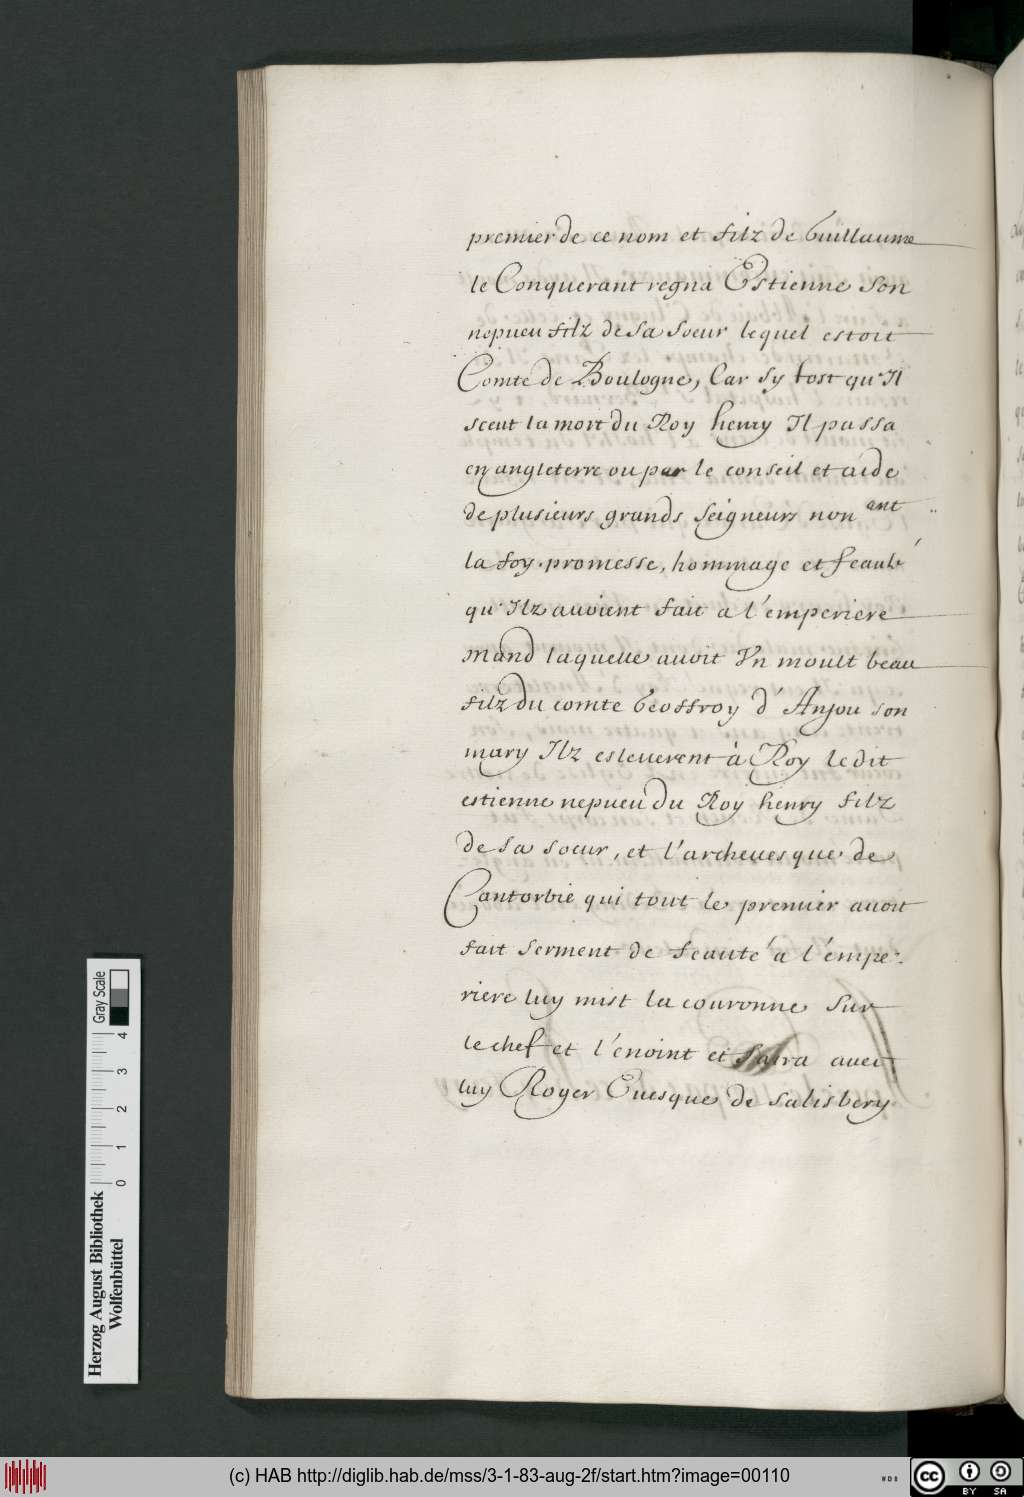 premier de ce nom et filz de Guillaume
le Conquerant regna Estienne son
nepueu filz de sa soeur lequel estoit
Comte de Boulogne, Car sy tost qu'Il
sceut la mort du Roy henry Il passa
en angleterre ou par le conseil et aide
de plusieurs grands Seigneurs non ant
la foy promesse, hommage et feaulté
qu'Ilz avoient fait a l'emperiere
Mand laquelle avoit Vn moult beau
filz du comte Geoffroy d'Anjou son
mary Ilz esleuerent à Roy le dit
estienne nepueu du Roy henry filz
de sa soeur, et l'archeuesque de
Cantorbie qui tout le premier auoit
fait serment de feauté a l'empe-
riere luy mist la couronne sur
le chef et l'énoint et Sacra auec
luy Roger Euesque de Salisbery
Gray Scale
4
3
2
1
0
Herzog August Bibliothek
Wolfenbüttel
(c) HAB http://diglib.hab.de/mss/3-1-83-aug-2f/start.htm?image=00110
WDB
cc
BY SA